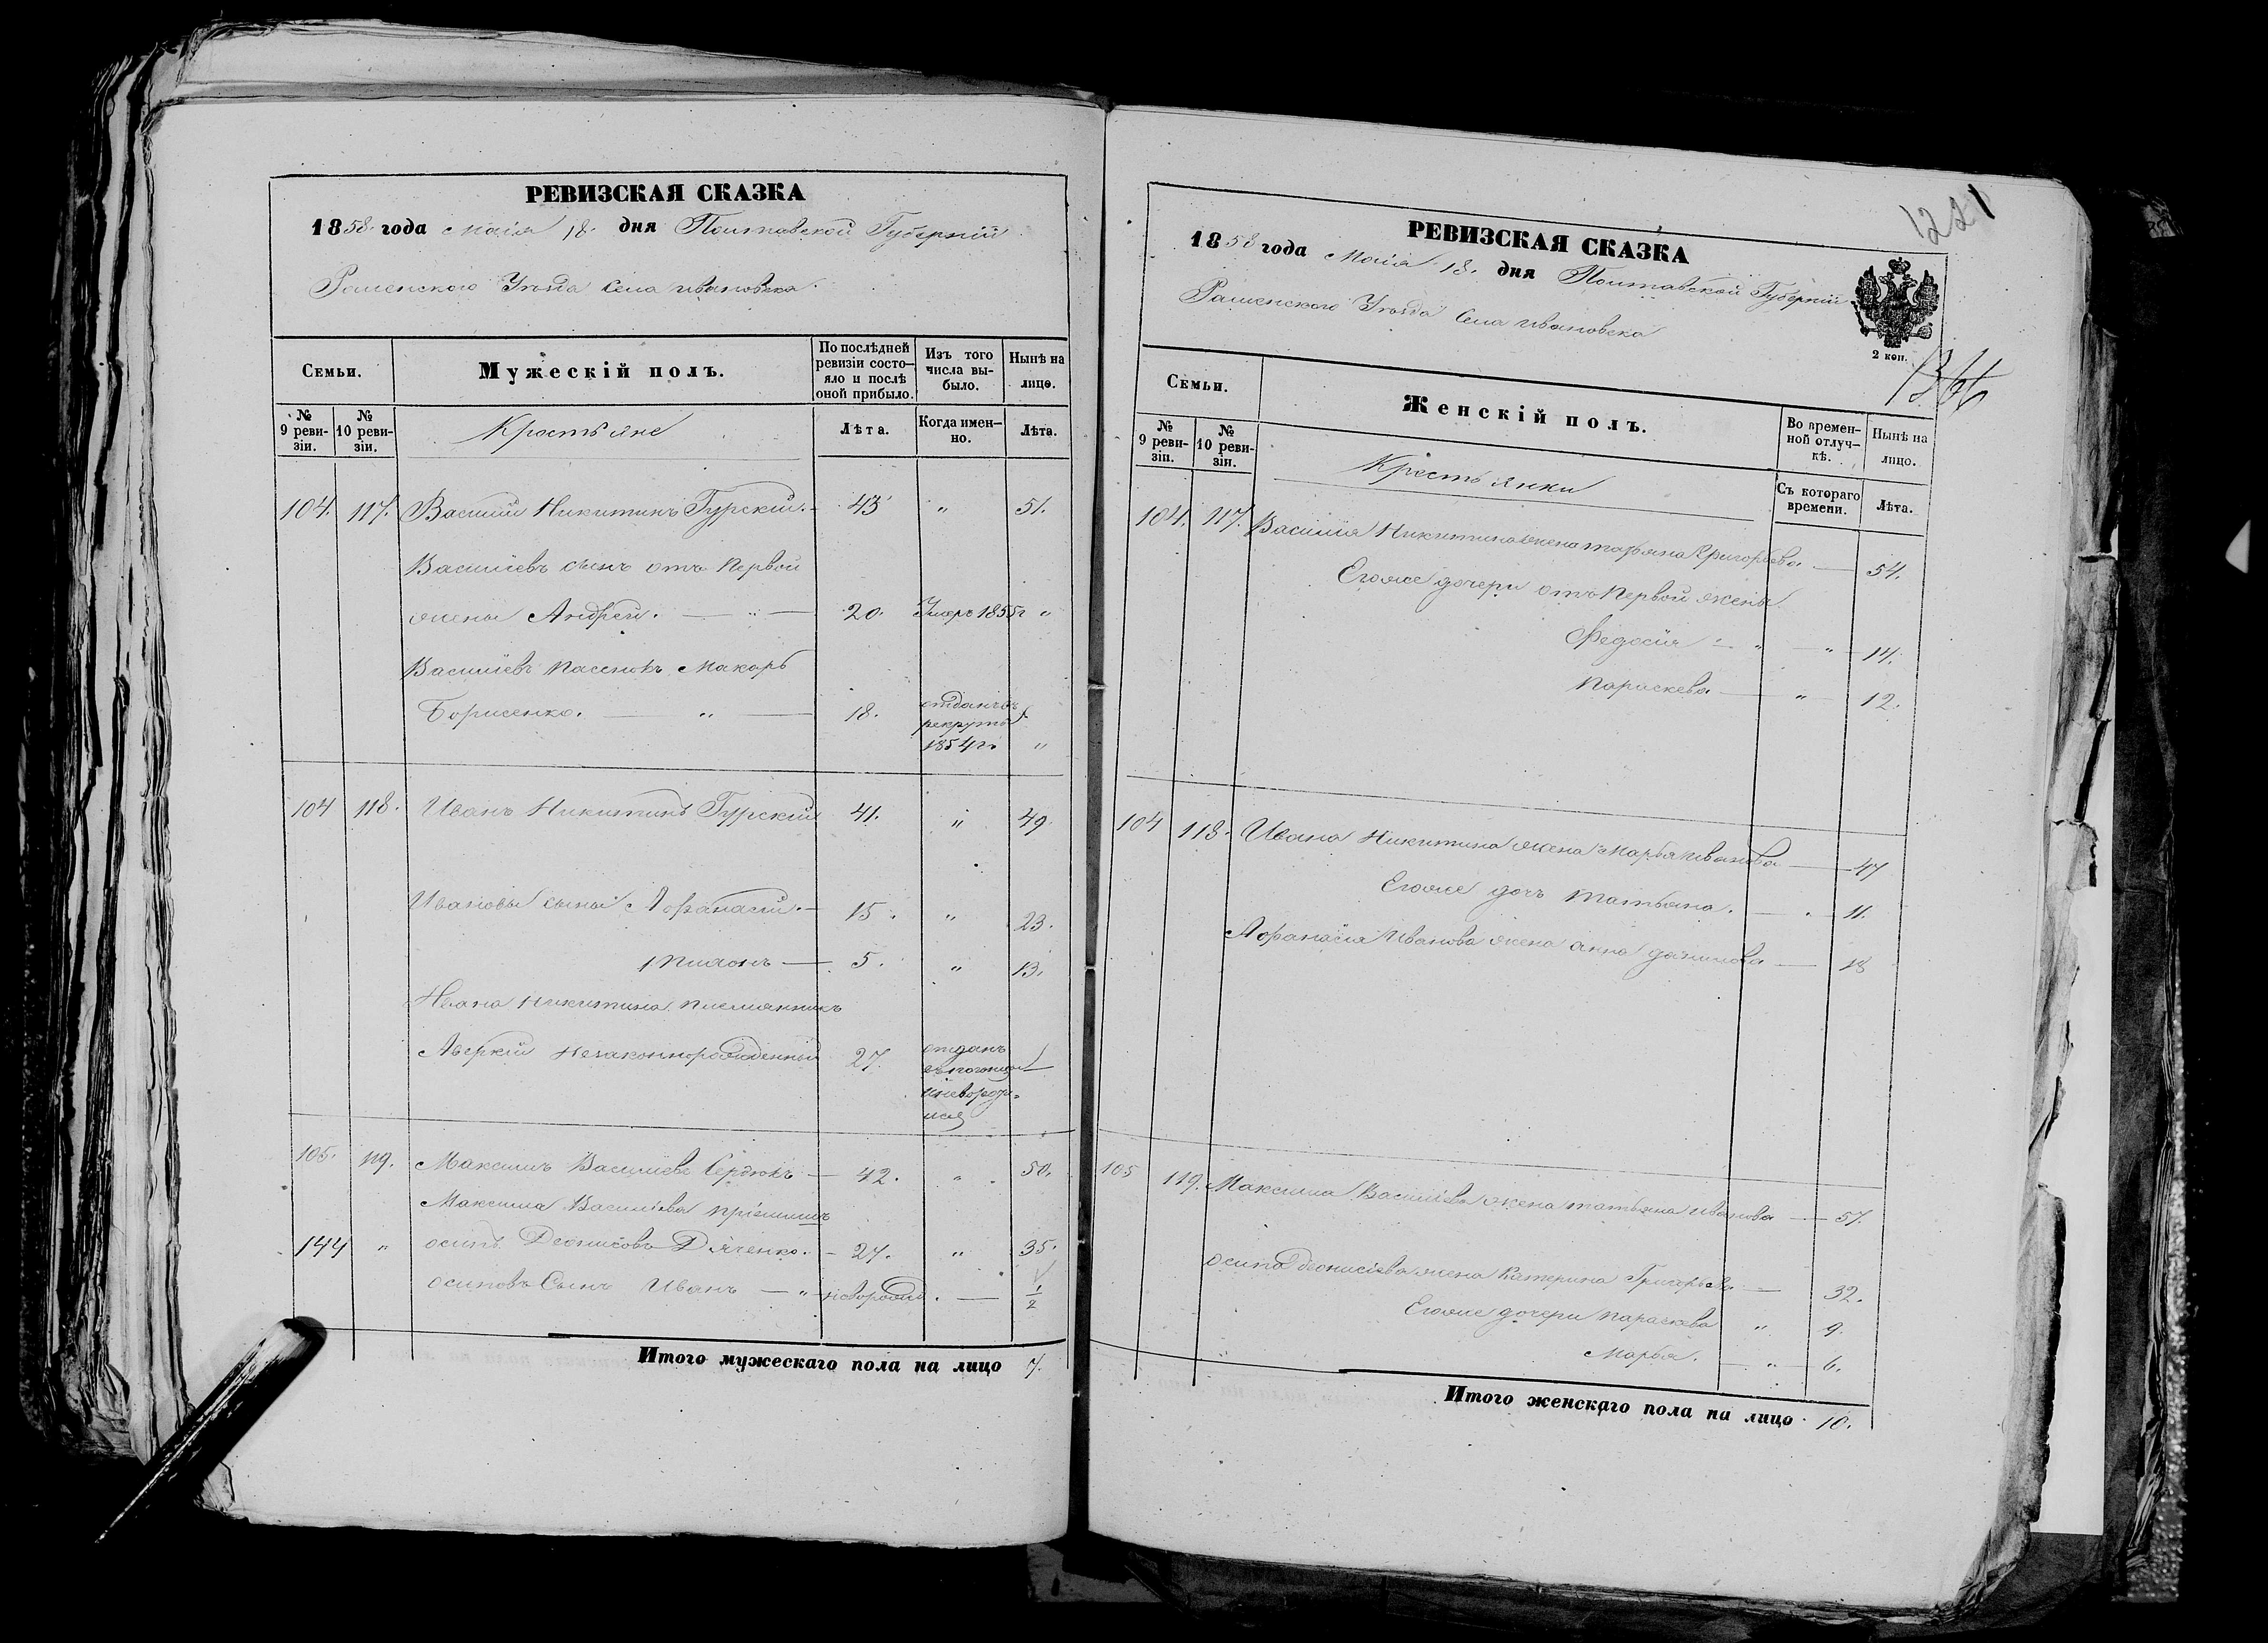 РЕВИЗСКАЯ СКАЗКА
1858 года Маія 18 дня Полтавской Губерніи
Роменского Уѣзда Села ивановска
Семьи.
Мужескій полъ.
По послѣдней ревизіи состо—яло и послѣ оной прибыло.
Изъ того числа вы-было.
Нынѣ на лицо.
№ 9 реви-зіи.
№ 10 реви-зіи.
Крестьяне
Лѣта.
Когда имен—но.
Лѣта.
104. 117. Василій Никитинъ Гурскій. 43 „ 51.
Василіевъ сынъ отъ Первой
жены Андрей. — „ — 20. Умеръ 1855г „
Василіевъ пасенокъ Макаръ
Борисенко. — „ — 18. отданъ въ
рекруты
1854г. „
104 118. Иванъ Никитинъ Гурскій 41. „ 49.
Ивановы сыны Афанасій. — 15. „ 23.
1 Пилипъ — 5. „ 13.
Ивана Никитина племянникъ
Аверкій Незаконнорожденный 27. отданъ
105. 119. Максимъ Василіевъ Сердюкъ — 42. „ 50.
Максима Василіева пріемышъ
144 „ осипъ Деонисовъ Дяченко. — 27. „ 35.
осиповъ Сынъ Иванъ — „ — новорожд. — 1/2
Итого мужескаго пола на лицо 7.
1221
РЕВИЗСКАЯ СКАЗКА
1858 года Маія 18. дня Полтавской Губерніи
Роменского Уѣзда Села ивановска
2 коп.
1366
Семьи.
Женскій полъ.
Во времен-ной отлуч—кѣ.
Нынѣ на лицо.
№ 9 реви-зіи.
№ 10 реви-зіи.
Крестьянки
Съ котораго времени.
Лѣта.
104. 117. Василія Никитина жена марьяна Григорьева — 54.
Егоже дочери отъ Первой жены
Федосія „ — „ — 14.
Параскева — „ — 12.
104 118. Ивана Никитина жена Марья Иванова — 47
Егоже дочь татьяна. — 11.
Афанасія Иванова жена анна данилова — 18
105 119. Максима Василіева жена татьяна иванова — 57.
осипа деонисіева жена Катерина Григорьева — 32.
Егоже дочери параскева „ 9.
Марья. — „ — 6.
Итого женскаго пола на лицо 10.